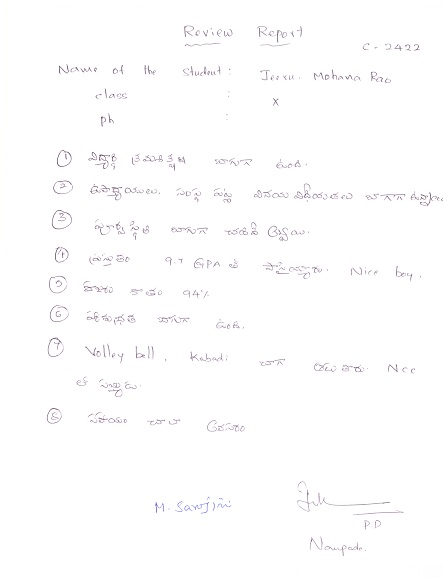 Review Report
C-2422
Name of the Student : Jeeru. Mohana Rao
class : X
ph :
① విద్యార్థి క్రమశిక్షణ బాగుగా ఉంది.
② ఉపాధ్యాయులు, సంస్థ పట్ల వినయ విధేయతలు బాగాగా ఉన్నాయి
③ పూర్వ స్థితి బాగుగా
④ ప్రస్తుతం 9.7 GPA తో పాసైయ్యారు. Nice boy.
⑤ హాజరు శాతం 94%
⑥ పరిశుభ్రత బాగుగా ఉంది.
⑦ Volley bell, Kabadi బాగా ఆడుతారు. Ncc
లో ఉన్నాడు.
⑧ సహాయం చాలా అవసరం
M. Sarojini
P.D
Naupada.